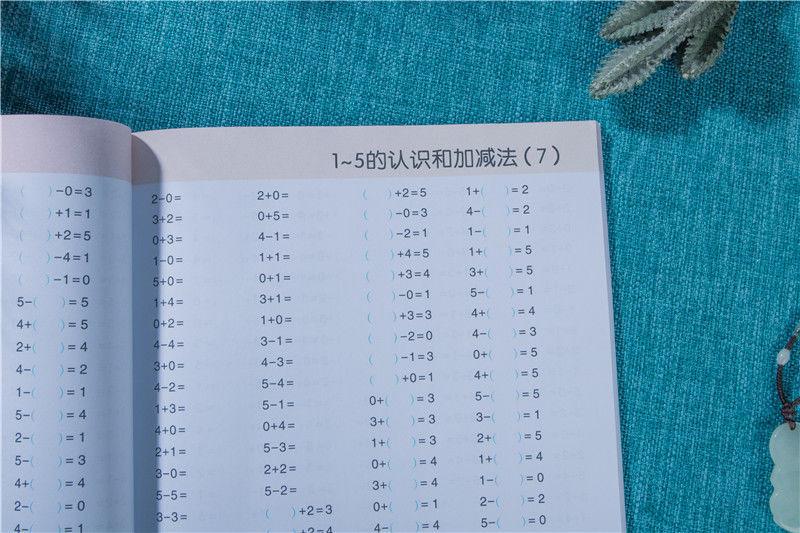 ( )-0=3
( )+1=1
( )+2=5
( )-4=1
( )-1=0
5-( )=5
4+( )=5
2+( )=4
4-( )=2
1-( )=1
5-( )=4
2-( )=1
5-( )=3
4+( )=4
2-( )=0
4-( )=1
1~5的认识和加减法(7)
2-0= 2+0= ( )+2=5 1+( )=2
3+2= 0+5= ( )-0=3 4-( )=2
0+3= 4-1= ( )-2=1 1-( )=1
1-0= 1+1= ( )+4=5 1+( )=5
5+0= 0+1= ( )+3=4 3+( )=5
1+4= 3+1= ( )-0=1 5-( )=1
0+2= 1+0= ( )+3=3 4+( )=4
4-4= 3-1= ( )-2=0 4-( )=3
3+0= 4-3= ( )-1=3 0+( )=5
4-2= 5-4= ( )+0=1 4+( )=5
1+3= 5-1= 0+( )=3 5-( )=5
4+0= 0+4= 3+( )=3 3-( )=1
2+1= 5-3= 1+( )=3 2+( )=5
3-0= 2+2= 0+( )=4 1+( )=4
5-5= 5-2= 3+( )=4 1-( )=0
3-3= ( )+2=3 0+( )=1 2-( )=2
( )+2=4 4-( )=4 5-( )=0